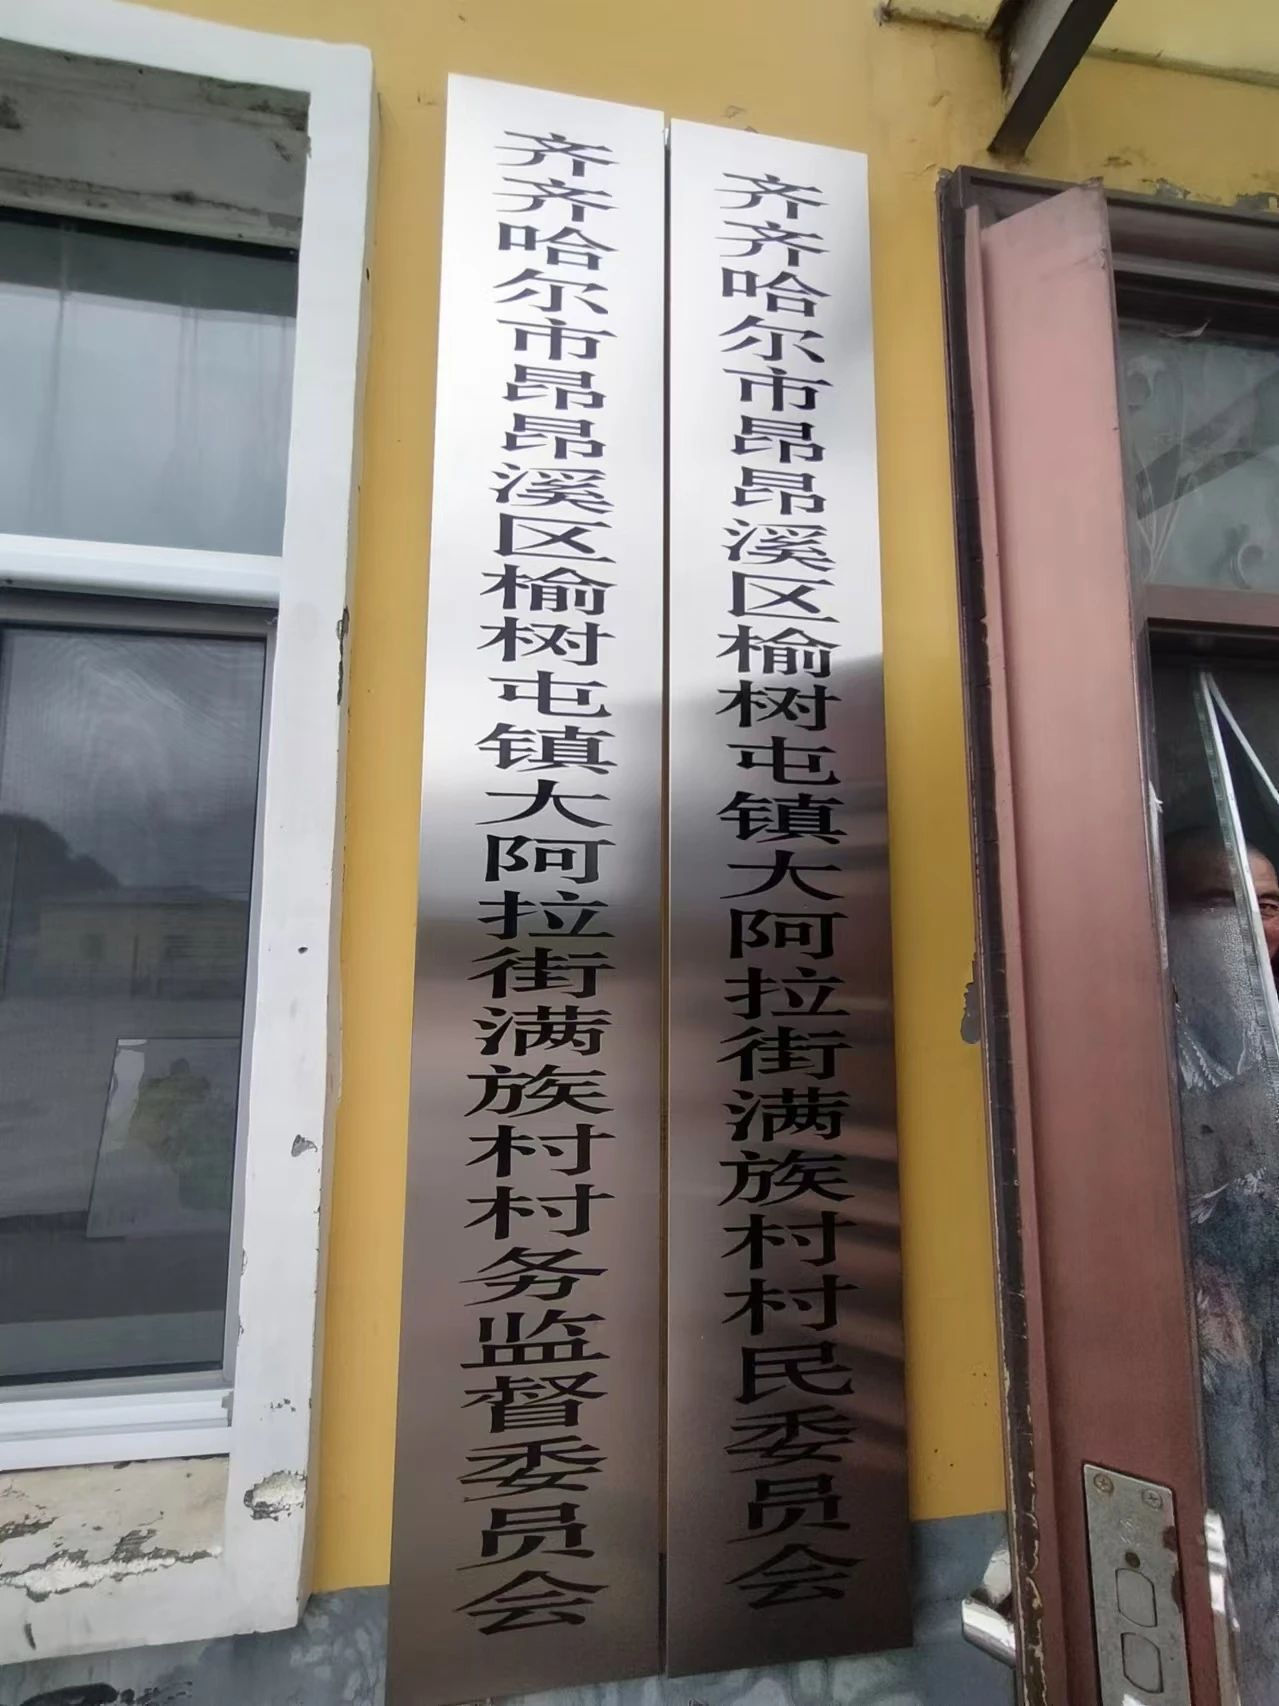 齐齐哈尔市昂昂溪区榆树屯镇大阿拉街满族村村民委员会
齐齐哈尔市昂昂溪区榆树屯镇大阿拉街满族村村务监督委员会